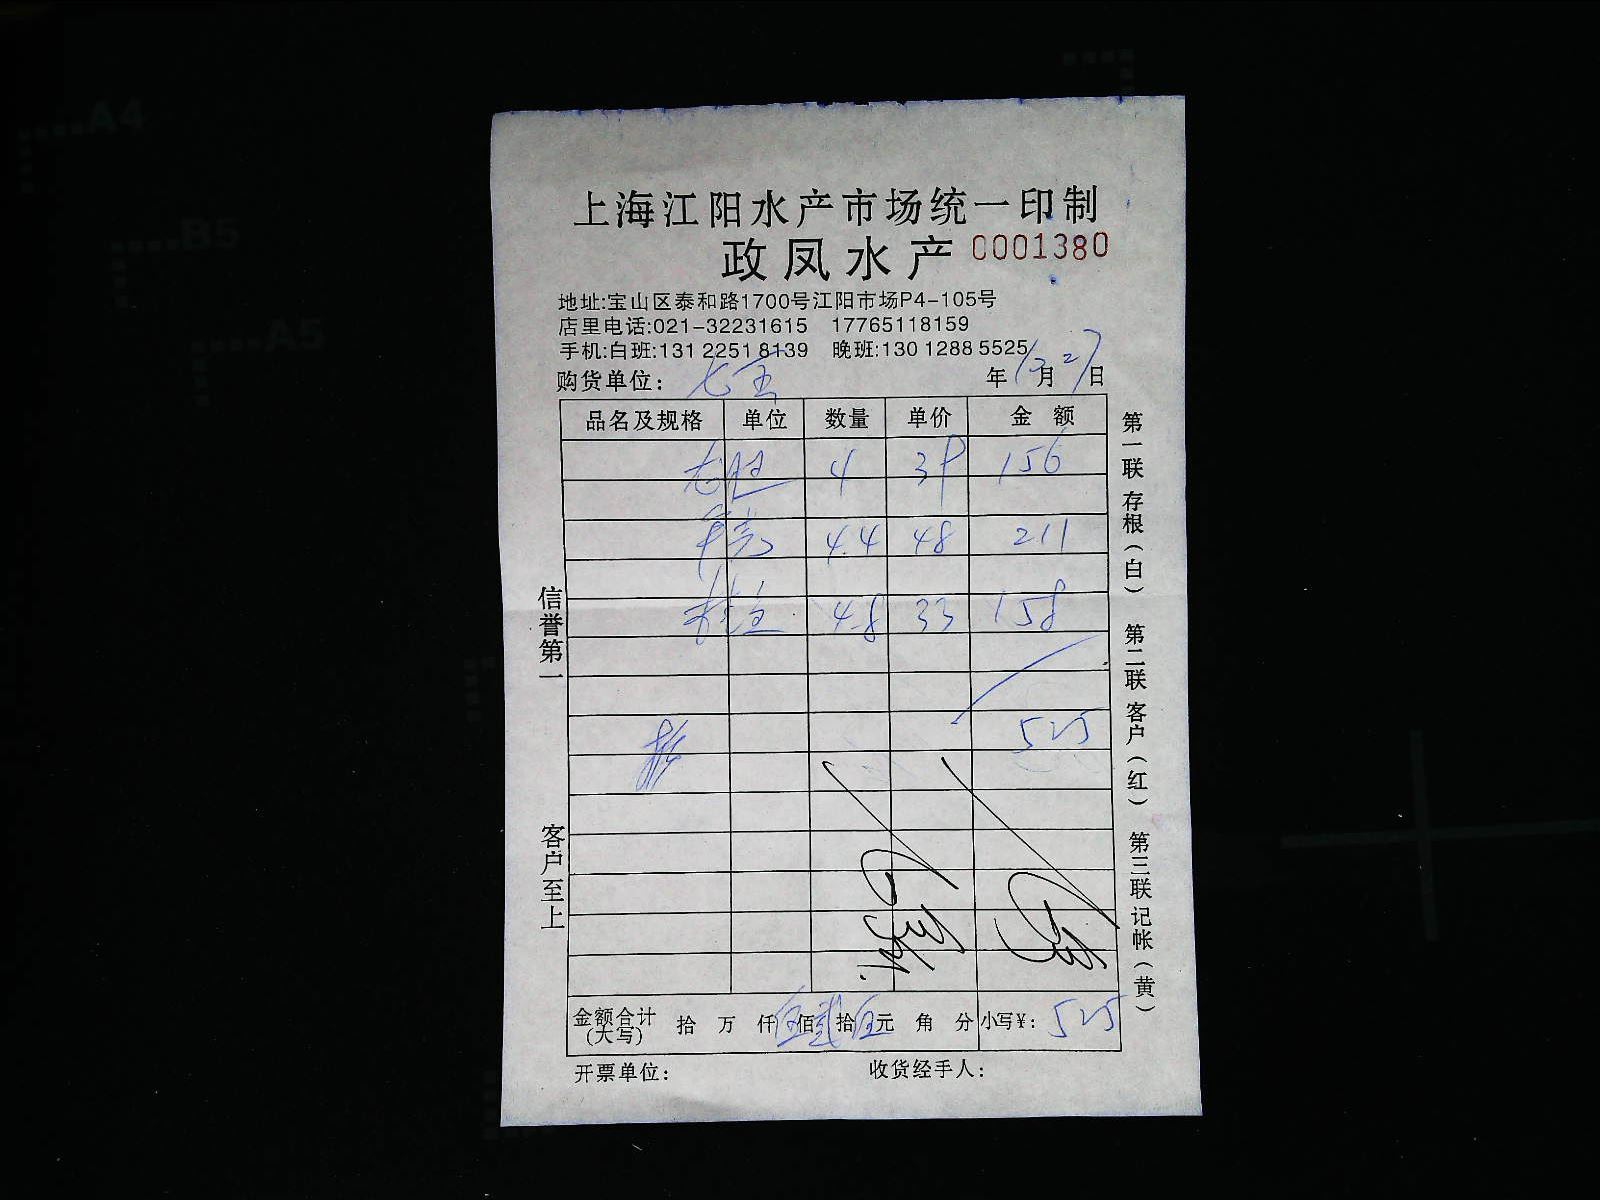 上海江阳水产市场统一印制
政凤水产 0001380
地址:宝山区泰和路1700号江阳市场P4-105号
店里电话:021-32231615 17765118159
手机:白班:131 2251 8139 晚班:130 1288 5525
购货单位: 七宝 年12月27日
品名及规格 单位 数量 单价 金额
4 39 156
4.4 48 211
4.8 33 158
525
金额合计(大写) 拾 万 仟伍佰贰拾伍元 角 分 小写¥: 525
开票单位: 收货经手人:
信誉第一
客户至上
第一联存根(白)
第二联客户(红)
第三联记帐(黄)
A4
B5
A5